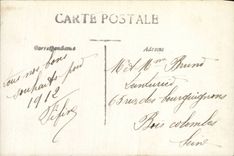 CARTE POSTALE
Correspondance
Adresse
tous nos bons
souhaits pour
1912
M et Mme Bruno
65 rue des bourguignons
Bois colombes
Seine